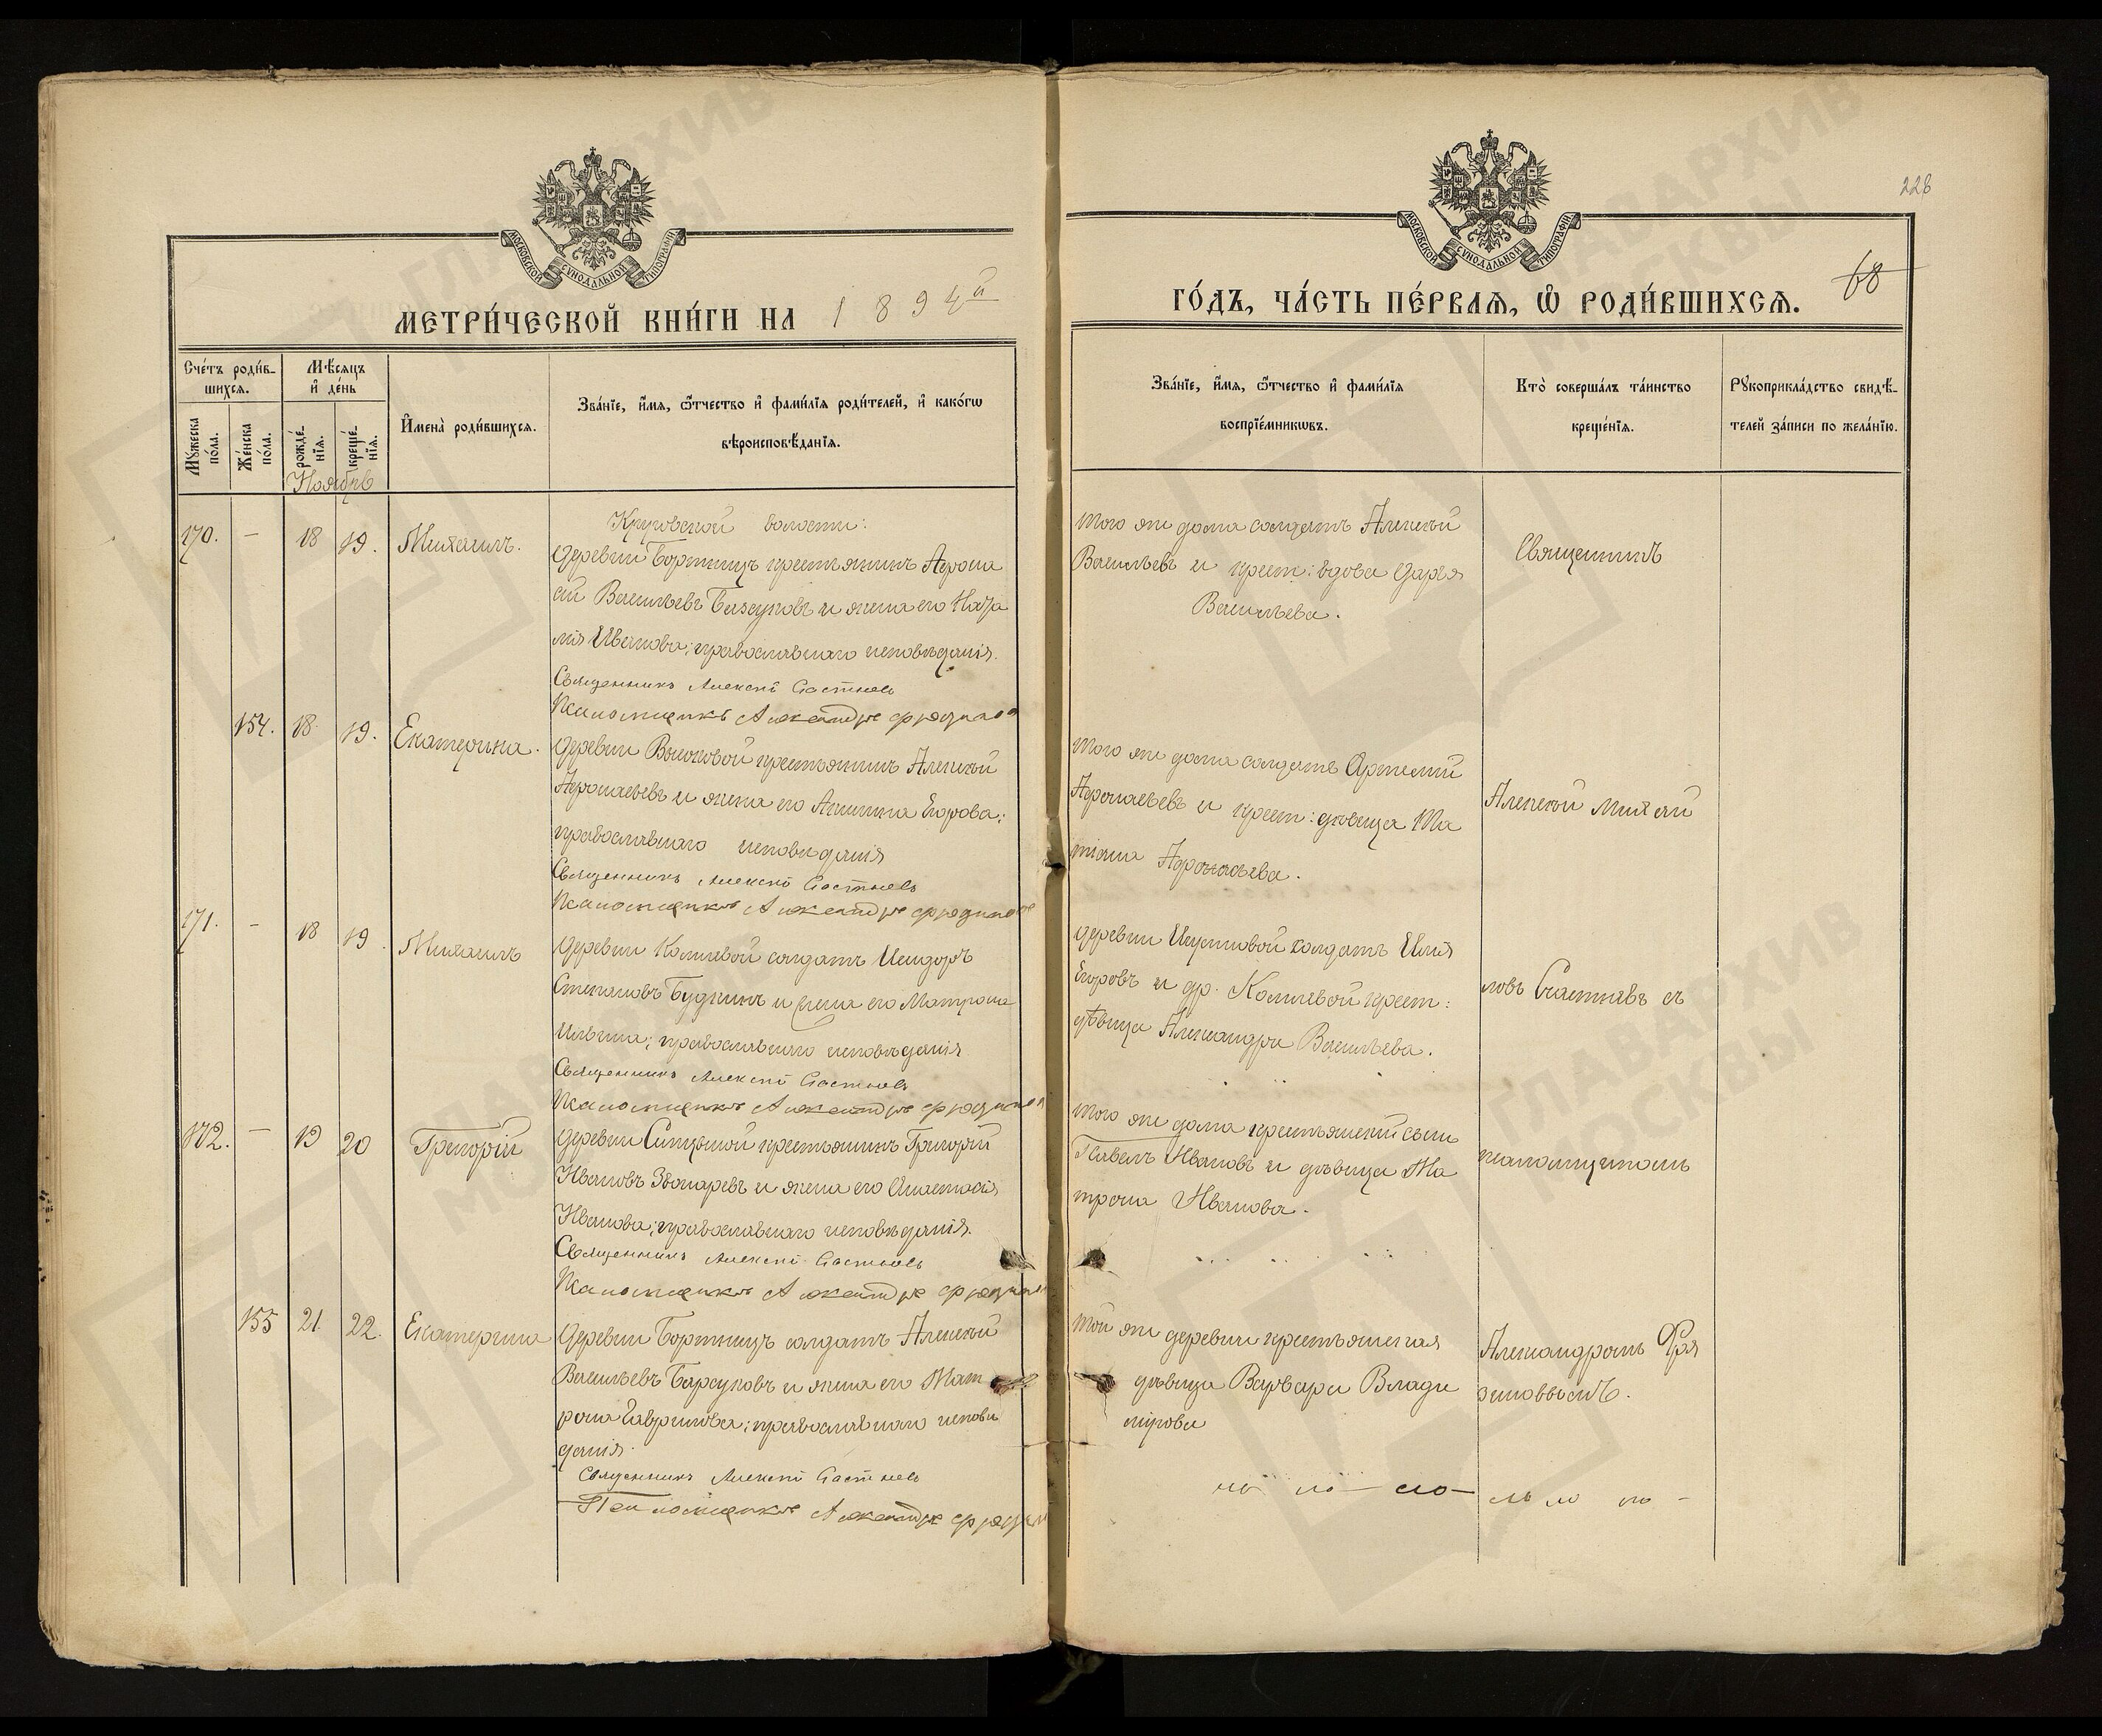 228
68
МЕТРИ́ЧЕСКОЙ КНИ́ГИ НА 1894й
ГО́ДЪ, ЧА́СТЬ ПЕ́РВАЯ, Ѡ҆ РОДИ́ВШИХСЯ.
МОСКОВСКОЙ СУНОДАЛЬНОЙ ТИПОГРАФІИ
МОСКОВСКОЙ СУНОДАЛЬНОЙ ТИПОГРАФІИ
Сче́тъ роди́в-
шихся.
Мѣ́сяцъ
и҆ де́нь
Мꙋ́жеска
по́ла.
Же́нска
по́ла.
рожде́-
нїя.
креще́-
нїя.
И҆мена̀ роди́вшихся.
Зва́нїе, и҆́мя, ѻ҆́тчество и҆ фами́лїя роди́телей, и҆ како́гѡ
вѣроисповѣ́данїя.
Зва́нїе, и҆́мя, ѻ҆́тчество и҆ фами́лїя
воспрїе́мникѡвъ.
Кто̀ соверша́лъ та́инство
креще́нїя.
Рꙋкоприкла́дство свидѣ́-
телей за́писи по жела́нїю.
Ноябрь
170. – 18 19. Михаилъ.
Круговской волости:
деревни Бортницъ крестьянинъ Афона
сій Васильевъ и жена его Ната
лія Иванова; православнаго исповѣданія.
Священникъ Алексій Счастневъ
Псаломщикъ Александръ Фрязиновъ
того же дома солдатъ Алексѣй
Васильевъ и крест: вдова Дарья
Васильева.
Священникъ
154. 18. 19. Екатерина.
деревни Высоковой крестьянинъ Алексѣй
Афонасьевъ и жена его Акилина Егорова;
православнаго исповѣданія
Священникъ Алексій Счастневъ
Псаломщикъ Александръ Фрязиновъ
того же дома солдатъ Артемій
Афонасьевъ и крест: дѣвица Та
тіана Афонасьева.
Алексѣй Михай
171. – 18 19. Михаилъ
деревни солдатъ Исидоръ
Степановъ Будкинъ и жена его Матрона
Ильина; православнаго исповѣданія
Священникъ Алексій Счастневъ
Псаломщикъ Александръ Фрязиновъ
деревни солдатъ Илія
Егоровъ и др. крест:
дѣвица Александра Васильева.
ловъ Счастневъ съ
172. – 19 20 Григорій
деревни крестьянинъ Григорій
Ивановъ Звонаревъ и жена его Анастасія
Иванова; православнаго исповѣданія.
Священникъ Алексій Счастневъ
Псаломщикъ Александръ Фрязиновъ
того же дома крестьянскій сынъ
Павелъ Ивановъ и дѣвица Ма
трона Иванова.
псаломщикомъ
155 21 22. Екатерина
деревни Бортницъ солдатъ Алексѣй
Васильевъ Барсуковъ и жена его Мат
рона Гаврилова; православнаго исповѣ
данія.
Священникъ Алексій Счастневъ
Псаломщикъ Александръ Фрязинов
той же деревни крестьянская
дѣвица Варвара Влади
мірова
Александромъ Фря
зиновымъ.